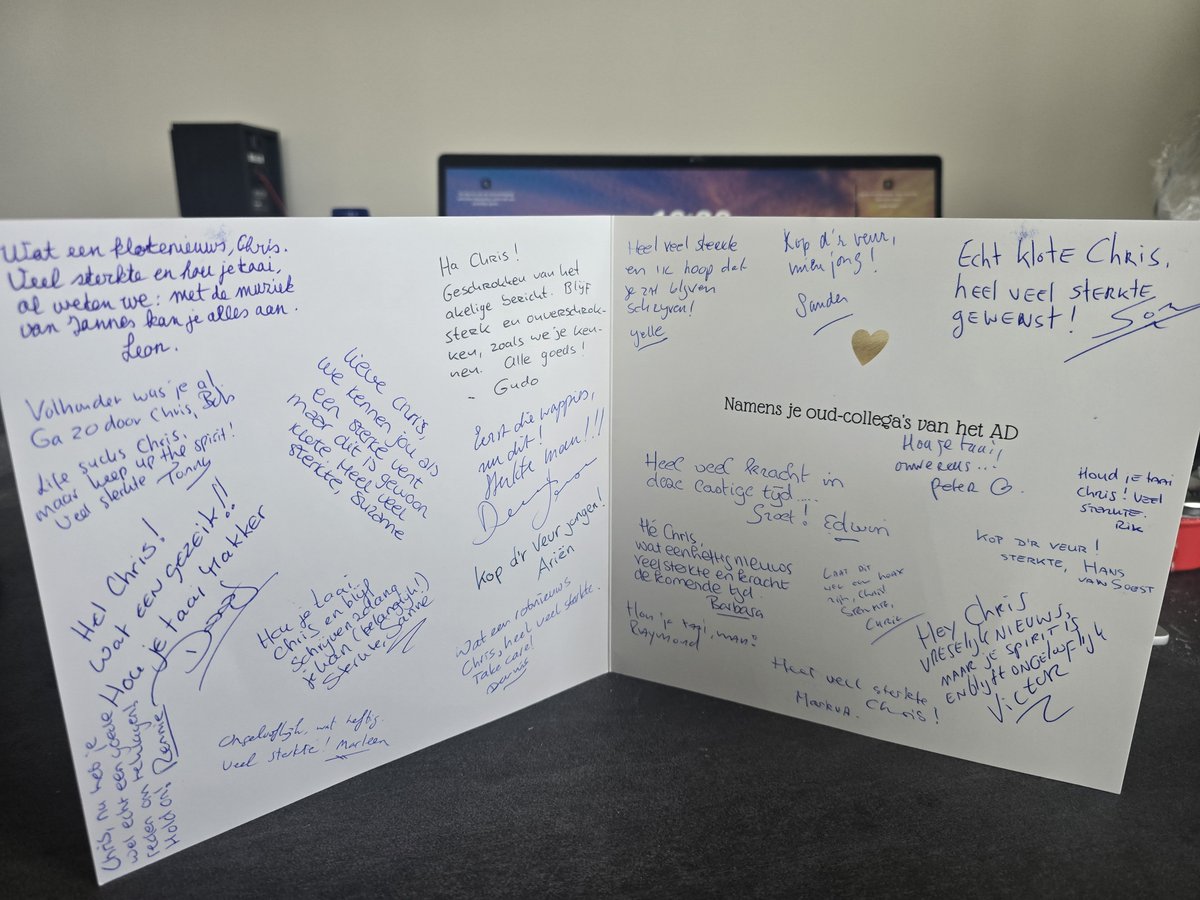 Wat een klotenieuws, Chris.
Veel sterkte en hou je taai,
al weten we: met de muziek
van Jannes kan je alles aan.
Leon.
Volhouder was je al
Ga zo door Chris, Bob
Life sucks Chris,
maar keep up the spirit!
Veel sterkte Tonny
Lieve Chris,
we kennen jou als
een sterke vent
maar dit is gewoon
klote. Heel veel
sterkte, Suzanne
Ha Chris!
Geschrokken van het
akelige bericht. Blijf
sterk en onverschrok-
ken, zoals we je ken-
nen. Alle goeds!
- Gudo
Eerst die wappies,
nu dit!
Sterkte man!!!
Kop d'r veur jongen!
Ariën
Hel Chris!
Wat een gezeik!!
Hou je taai makker
Hou je taai
Chris en blijf
schrijven zolang
je kan (belangrijk!)
Sterkte, Sanne
Wat een rotnieuws
Chris, heel veel sterkte.
Take care!
Chris, nu heb je
wel echt een goede
reden om te klagen!
Hold on, Rennie
Ongelooflijk, wat heftig.
Veel sterkte! Marleen
Heel veel sterkte
en ik hoop dat
je zal blijven
schrijven!
Yelle
Kop d'r veur,
mien jong!
Sander
Echt klote Chris,
heel veel sterkte
gewenst!
Namens je oud-collega's van het AD
Hou je taai,
Peter G.
Heel veel kracht in
deze caotige tijd.....
Groet! Edwin
Houd je taai
Chris! Veel
sterkte.
Rik
Hé Chris,
wat een heftig nieuws
veel sterkte en kracht
de komende tijd.
Barbara
Kop d'r veur!
Sterkte, Hans
van Soest
Chris
Sterkte,
Hou je taai, man!
Raymond
Hey Chris
Vreselijk nieuws,
maar je spirit is
en blijft ongelooflijk
Victor
Heel veel sterkte
Chris!
Mark v.A.